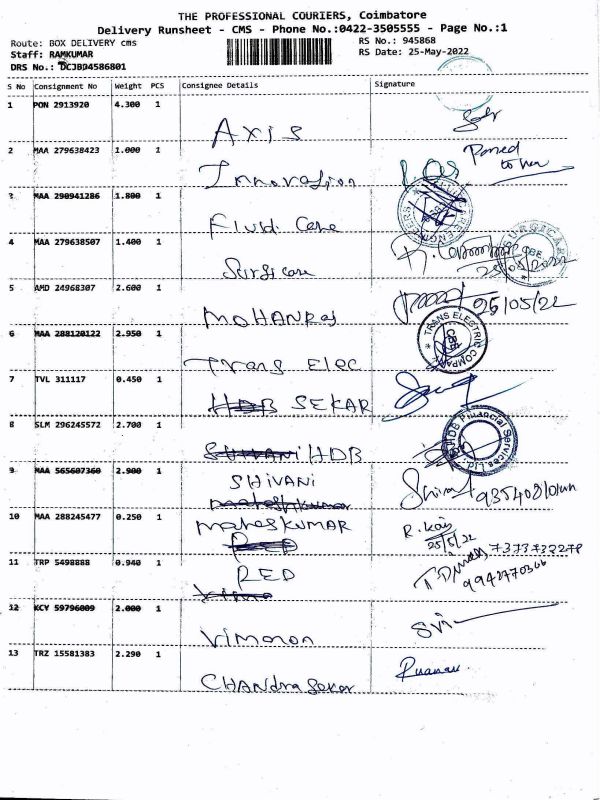 THE PROFESSIONAL COURIERS, Coimbatore
Delivery Runsheet - CMS - Phone No.:0422-3505555 - Page No.:1
Route: BOX DELIVERY cms RS No.: 945868
Staff: RAMKUMAR RS Date: 25-May-2022
DRS No.: DCJBD4586801
S No Consignment No Weight PCS Consignee Details Signature
1 PON 2913920 4.300 1
Axis
2 MAA 279638423 1.000 1
Innovation
3 MAA 290941286 1.800 1
Fluid Care
4 MAA 279638507 1.400 1
Surgi care
25/05/2022
5 AMD 24968307 2.600 1
MOHANRaj 25/05/22
TRANS ELECTRIC COMPANY CBE
6 MAA 288120122 2.950 1
Trans Elec
7 TVL 311117 0.450 1
HDB SEKAR
8 SLM 296245572 2.700 1
SHIVANI HDB
HDB Financial Services Ltd.
9 MAA 565607360 2.900 1
SHIVANI
maheshkumar
10 MAA 288245477 0.250 1
maheskUMAR
25/5/22
RED
7373732278
11 TRP 5498888 0.940 1
RED
9942770366
12 KCY 59796009 2.000 1
Vimaron
13 TRZ 15581383 2.290 1
CHANdraSekar